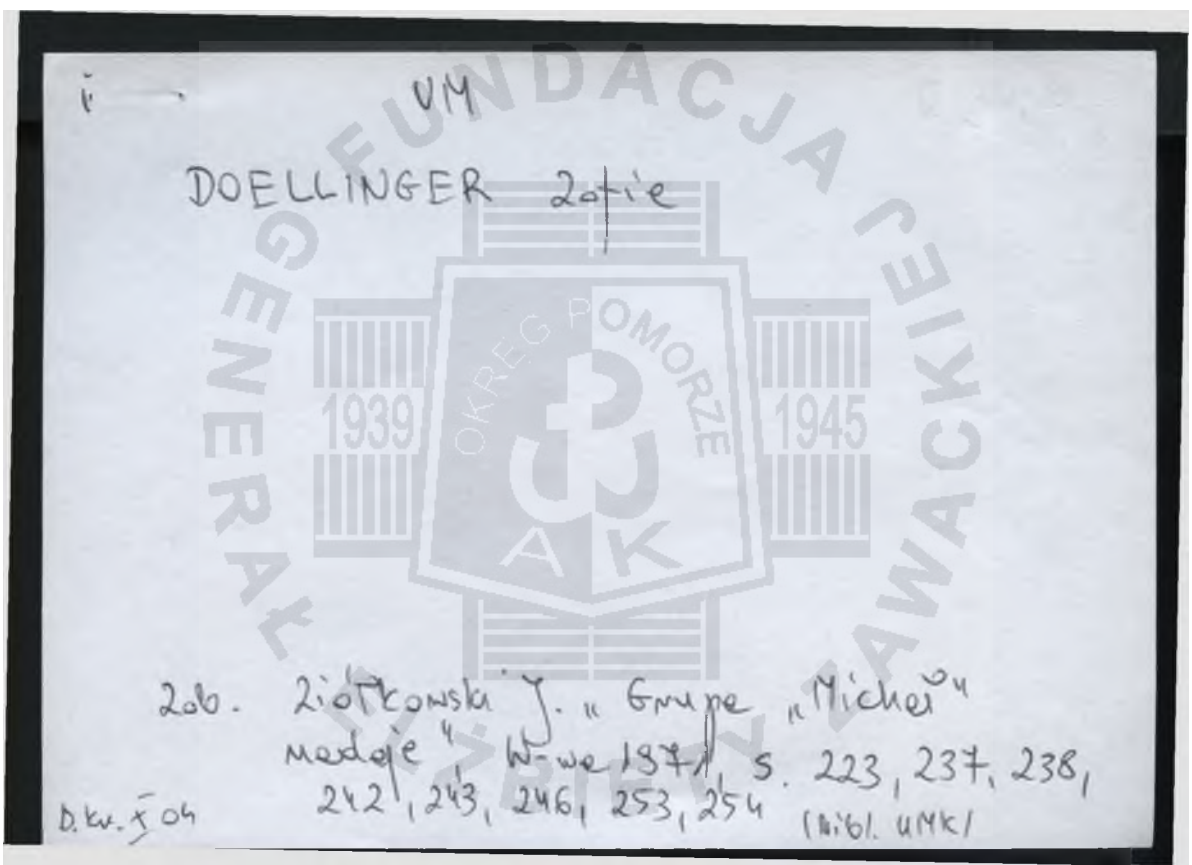 VM
DOELLINGER Zofia
Zob. Ziółkowski J. „Grupa „Michał”
nadaje” W-wa 1971, s. 223, 237, 238,
242, 243, 246, 253, 254 (bibl. UMK)
D. Kr. X 04
FUNDACJA GENERAŁ ELŻBIETY ZAWACKIEJ
OKRĘG POMORZE
1939 1945
AK